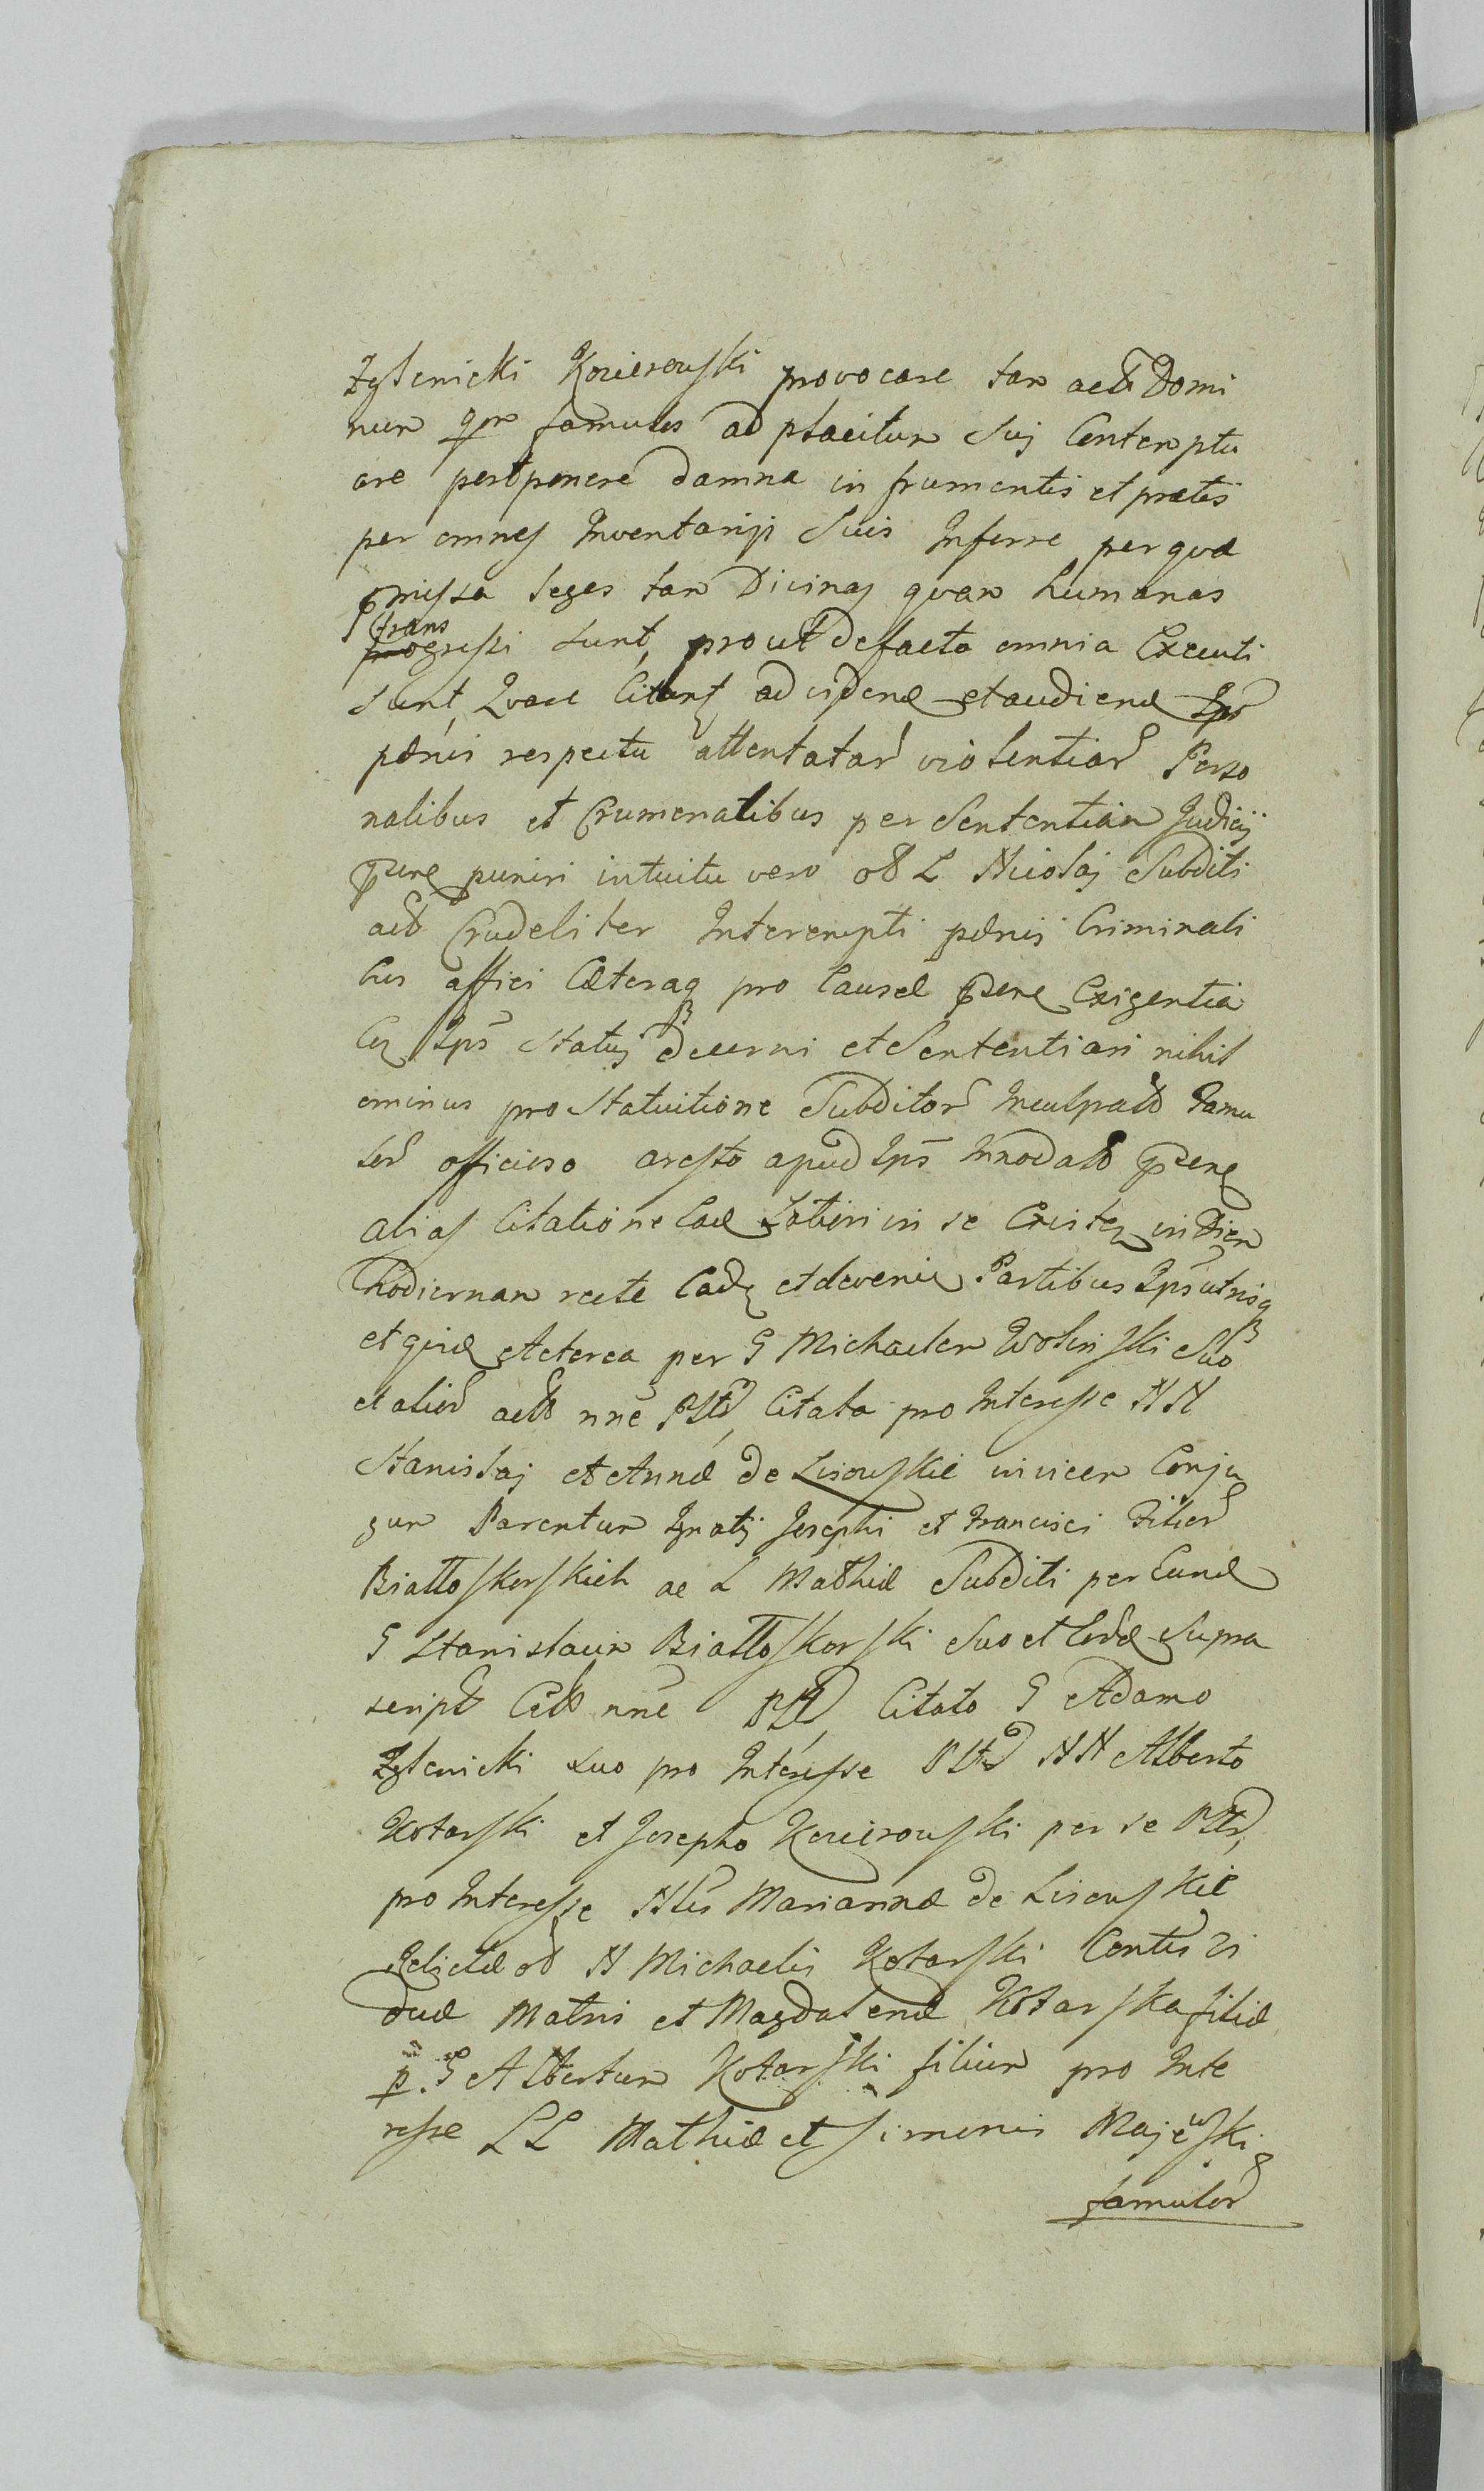 Zglenicki Kozierowski provocare tam actr Domi
num qm famulos ad placitum Suj Contemptu
ose postponere damna in frumentis et pratis
per omnes Inventarijs Suis Inferre per quæ
pmissa leges tam Divinas quam humanas
trans
progressi sunt, prout defacto omnia Executi
sunt, Quare Citantr ad videnđ et audienđ Ips
pænis respectu attentatar violentiar Perso
nalibus et Crumenalibus per Sententiam Judicij
psens puniri intuitu vero ob L Nicolaj Subditi
act Crudeliter Interempti pænis Criminali
bus affici Cæteraq pro Causæ psens Exigentia
Ips Statuj decerni et Sententiari nihil
ominus pro Statuitione Subditor Inculpatr Famu
lor officioso aresto apud Ips Innodatr psens
alias Citatione Latiori in se in Diem
hodiernam recte Cadž et deveniē Partibus Ips utrisq
et quidē Actorea per G Michaelem Wolinski Suo
et alior actr nne Pltr, Citata pro Interesse NN
Stanislaj et Annæ de Lisowskie invicem Conju
gum Parentum Ignatij Josephi et Francisci Filior
Białłoskorskich ac L Mathiæ Subditi per Eund
G Stanislaum Białłoskorski Suo et Eord Supra
script Citr nne Pltr Citato G Adamo
Zglenicki Suo pro Interesse Pltr NN Alberto
Kotarski et Josepho Kozierowski per se Pltr,
pro Interesse Nlis Mariannæ de Lisowskie
Relictæ od N Michaelis Kotarski Contis Vi
duæ Matris et Magdalenæ Kotarska filiæ
p. G Albertum Kotarski filium pro Inte
resse LL Mathiæ et Simonis Majewski
famulor